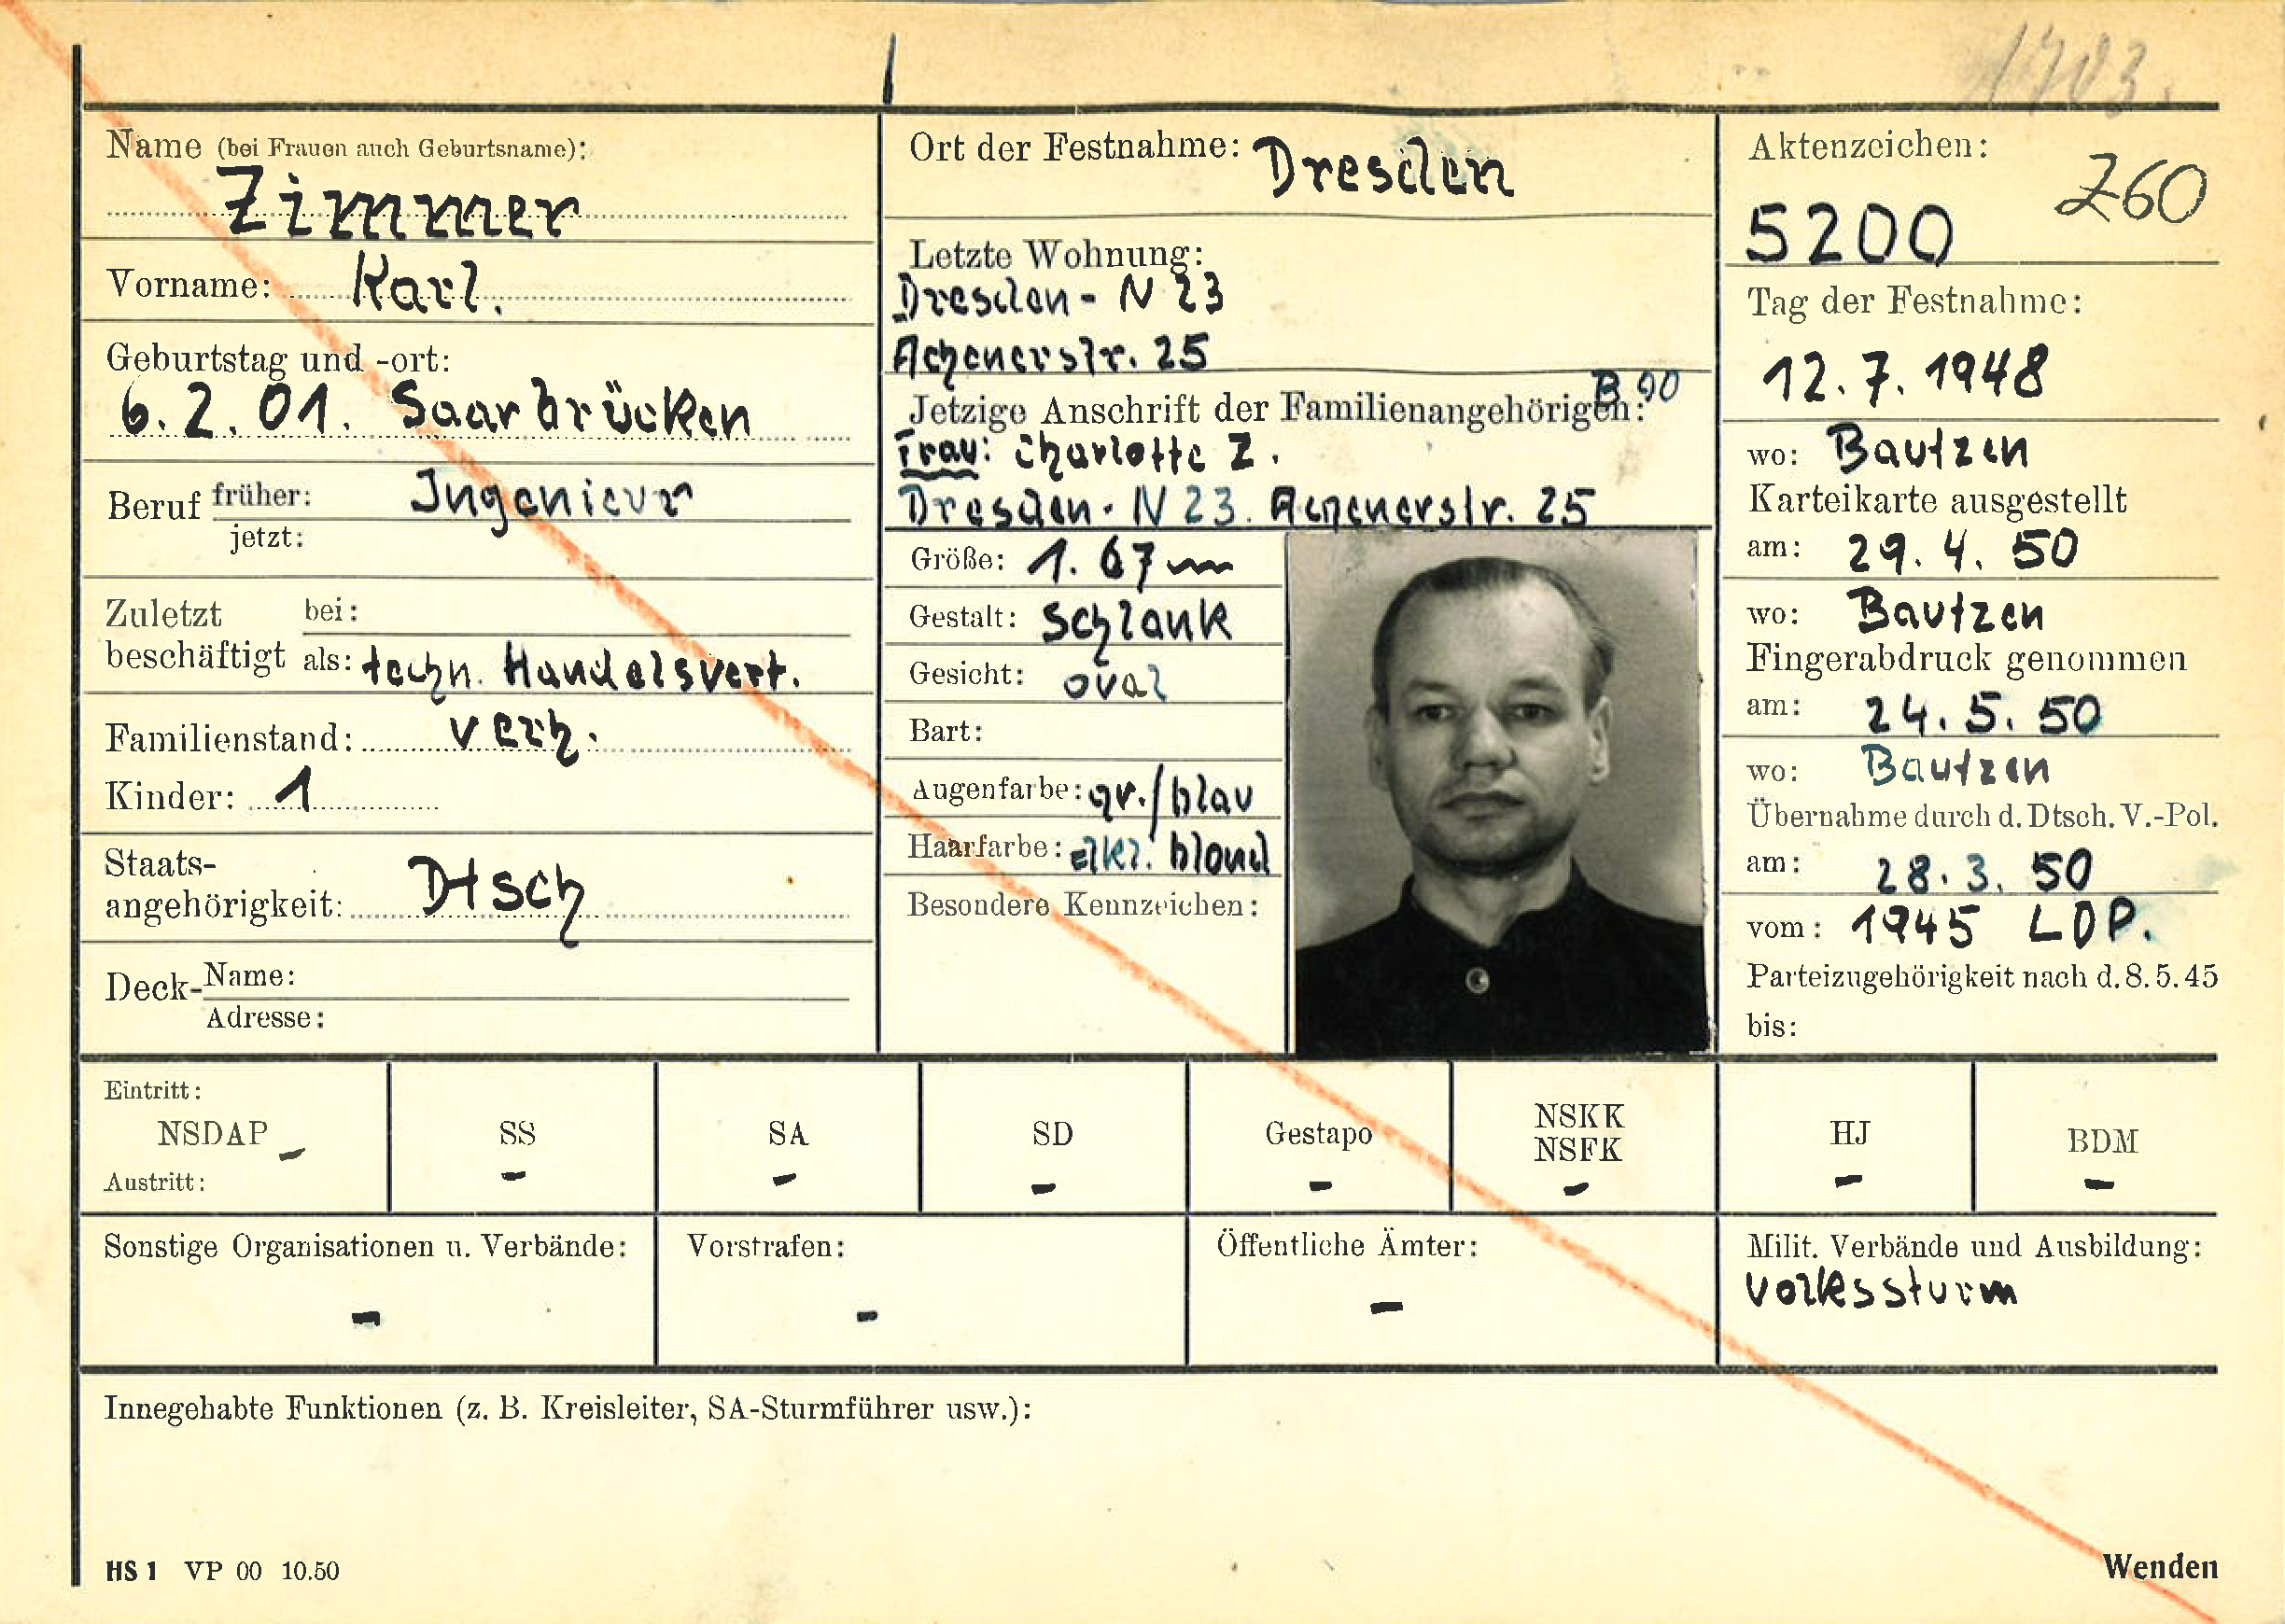 1703.
Name (bei Frauen auch Geburtsname):
Zimmer
Vorname: Karl.
Geburtstag und -ort:
6.2.01. Saarbrücken
Beruf früher: Ingenieur
jetzt:
Zuletzt bei:
beschäftigt als: techn. Handelsvert.
Familienstand: verh.
Kinder: 1
Staats-
angehörigkeit: Dtsch
Deck- Name:
Adresse:
Ort der Festnahme: Dresden
Letzte Wohnung:
Dresden - N 23
Achenerstr. 25
B 90
Jetzige Anschrift der Familienangehörigen:
Frau: Charlotte Z.
Dresden - N 23. Achenerstr. 25
Größe: 1.67 m
Gestalt: schlank
Gesicht: oval
Bart:
Augenfarbe: gr./blau
Haarfarbe: dkl. blond
Besondere Kennzeichen:
Aktenzeichen:
5200 Z60
Tag der Festnahme:
12.7.1948
wo: Bautzen
Karteikarte ausgestellt
am: 29.4.50
wo: Bautzen
Fingerabdruck genommen
am: 24.5.50
wo: Bautzen
Übernahme durch d. Dtsch. V.-Pol.
am: 28.3.50
vom: 1945 LDP.
Parteizugehörigkeit nach d. 8.5.45
bis:
Eintritt:
NSDAP -
Austritt:
SS
-
SA
-
SD
-
Gestapo
-
NSKK
NSFK
-
HJ
-
BDM
-
Sonstige Organisationen u. Verbände:
-
Vorstrafen:
-
Öffentliche Ämter:
-
Milit. Verbände und Ausbildung:
Volkssturm
Innegehabte Funktionen (z. B. Kreisleiter, SA-Sturmführer usw.):
HS 1 VP 00 10.50
Wenden